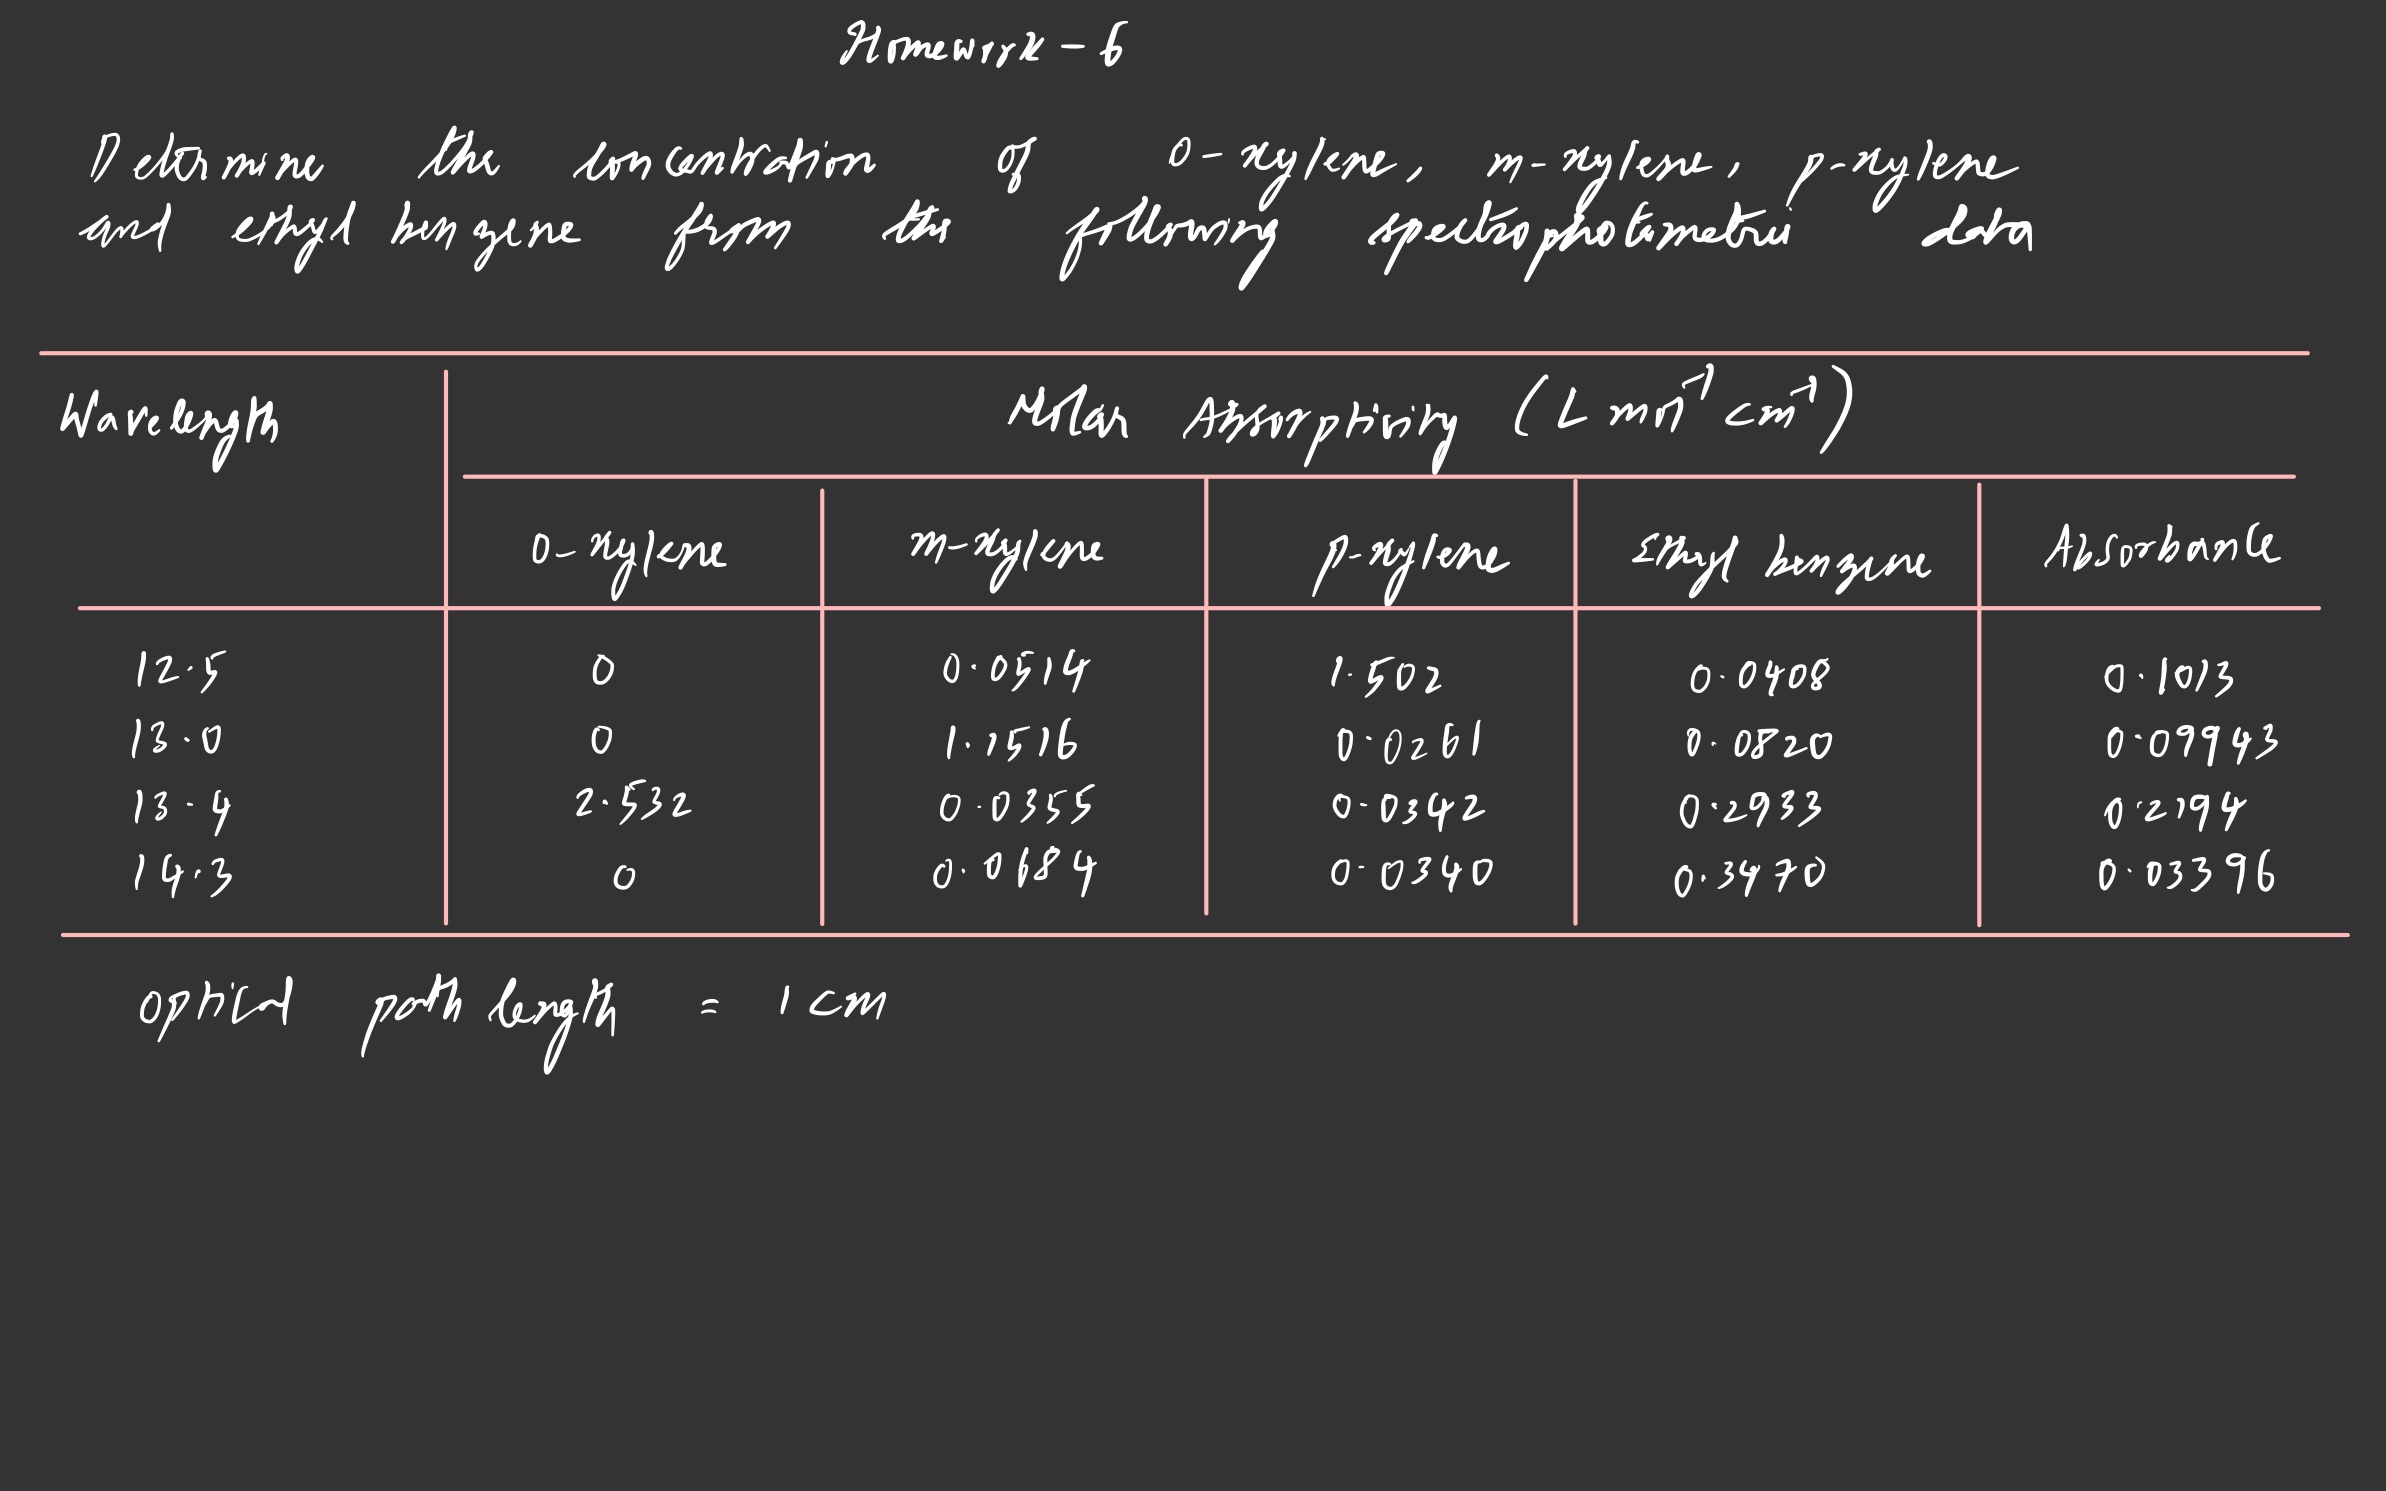 Homework - 6
Determine the concentration of O-xylene, m-xylene, p-xylene
and ethyl benzene from the following spectrophotometric data
Wavelength Molar Absorptivity (L mol⁻¹ cm⁻¹)
O-xylene m-xylene p-xylene Ethyl benzene Absorbance
12.5 0 0.0514 1.502 0.0408 0.1013
13.0 0 1.1516 0.0261 0.0820 0.09943
13.4 2.532 0.0355 0.0342 0.2933 0.2194
14.3 0 0.0684 0.0340 0.3470 0.03396
Optical path length = 1 cm